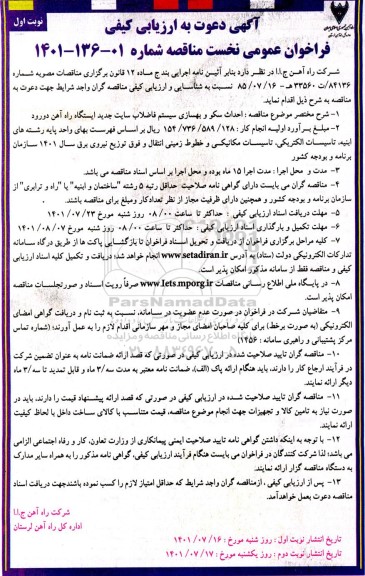 نوبت اول
آگهی دعوت به ارزیابی کیفی
فراخوان عمومی نخست مناقصه شماره ۰۱-۱۳۶-۱۴۰۱
شرکت راه آهن ج.ا.ا در نظر دارد بنابر آئین نامه اجرایی بند ج ماده ۱۲ قانون برگزاری مناقصات مصوبه شماره
۸۴۱۳۶/ت ۳۳۵۶۰ هـ - ۸۵/۰۷/۱۶ نسبت به شناسایی و ارزیابی کیفی مناقصه گران واجد شرایط جهت دعوت به
مناقصه به شرح ذیل اقدام نماید.
۱- شرح مختصر موضوع مناقصه : احداث سکو و بهسازی سیستم فاضلاب سایت جدید ایستگاه راه آهن دورود
۲- مبلغ برآورد اولیه انجام کار: ۱۵۴/۷۳۶/۵۸۹/۱۲۸ ریال بر اساس فهرست بهای واحد پایه رشته های
ابنیه، تاسیسات الکتریکی، تاسیسات مکانیکی و خطوط زمینی انتقال و فوق توزیع نیروی برق سال ۱۴۰۱ سازمان
برنامه و بودجه کشور
۳- مدت و محل اجرا : مدت اجرا ۱۵ ماه بوده و محل اجرا بر اساس اسناد مناقصه می باشد.
۴- مناقصه گران می بایست دارای گواهی نامه صلاحیت حداقل رتبه ۵ رشته "ساختمان و ابنیه" یا "راه و ترابری" از
سازمان برنامه و بودجه کشور و همچنین دارای ظرفیت مجاز از نظر تعداد کار و مبلغ برای مناقصه باشند.
۵- مهلت دریافت اسناد ارزیابی کیفی : حداکثر تا ساعت ۰۸/۰۰ روز شنبه مورخ ۱۴۰۱/۰۷/۲۳
۶- مهلت تکمیل و بارگذاری اسناد ارزیابی کیفی : حداکثر تا ساعت ۰۸/۰۰ روز شنبه مورخ ۱۴۰۱/۰۸/۰۷
۷- کلیه مراحل برگزاری فراخوان از دریافت و تحویل اسناد فراخوان تا بازگشایی پاکت ها از طریق درگاه سامانه
تدارکات الکترونیکی دولت (ستاد) به آدرس www.setadiran.ir انجام خواهد شد؛ دریافت و تکمیل کلیه اسناد ارزیابی
کیفی و مناقصه فقط از سامانه مذکور امکان پذیر است.
۸- در پایگاه ملی اطلاع رسانی مناقصات www.Iets.mporg.ir صرفاً رویت اسناد و صورتجلسات مناقصه
امکان پذیر است.
۹- متقاضیان شرکت در فراخوان در صورت عدم عضویت در سامانه، نسبت به ثبت نام و دریافت گواهی امضای
الکترونیکی (به صورت برخط) برای کلیه صاحبان امضای مجاز و مهر سازمانی اقدام لازم را به عمل آورند؛ (شماره تماس
مرکز پشتیبانی و راهبری سامانه : ۱۴۵۶)
۱۰- مناقصه گران تایید صلاحیت شده در ارزیابی کیفی در صورتی که قصد ارائه ضمانت نامه به عنوان تضمین شرکت
در فرآیند ارجاع کار را دارند، باید هنگام ارائه پاک (الف)، ضمانت نامه معتبر به مدت سه/۳ ماه و قابل تمدید تا سه/۳ ماه
دیگر ارائه نمایند.
۱۱- مناقصه گران تایید صلاحیت شده در ارزیابی کیفی در صورتی که قصد ارائه پیشنهاد قیمت را دارند، باید در
صورت نیاز به تامین کالا و تجهیزات جهت انجام موضوع مناقصه، قیمت متناسب با کالای ساخت داخل با لحاظ کیفیت
ارائه نمایند.
۱۲- با توجه به اینکه داشتن گواهی نامه تایید صلاحیت ایمنی پیمانکاری از وزارت تعاون، کار و رفاه اجتماعی الزامی
می باشد؛ لذا شرکت کنندگان در فراخوان می بایست هنگام فرآیند ارزیابی کیفی، گواهی نامه مذکور را به همراه سایر مدارک
به دستگاه مناقصه گزار ارائه نمایند.
۱۳- پس از ارزیابی کیفی، از مناقصه گران واجد شرایط که حداقل امتیاز لازم را کسب نموده باشند جهت دریافت اسناد
مناقصه دعوت بعمل خواهد آمد.
شرکت راه آهن ج.ا.ا
اداره کل راه آهن لرستان
تاریخ انتشار نوبت اول : روز شنبه مورخ : ۱۴۰۱/۰۷/۱۶
تاریخ انتشار نوبت دوم : روز یکشنبه مورخ : ۱۴۰۱/۰۷/۱۷